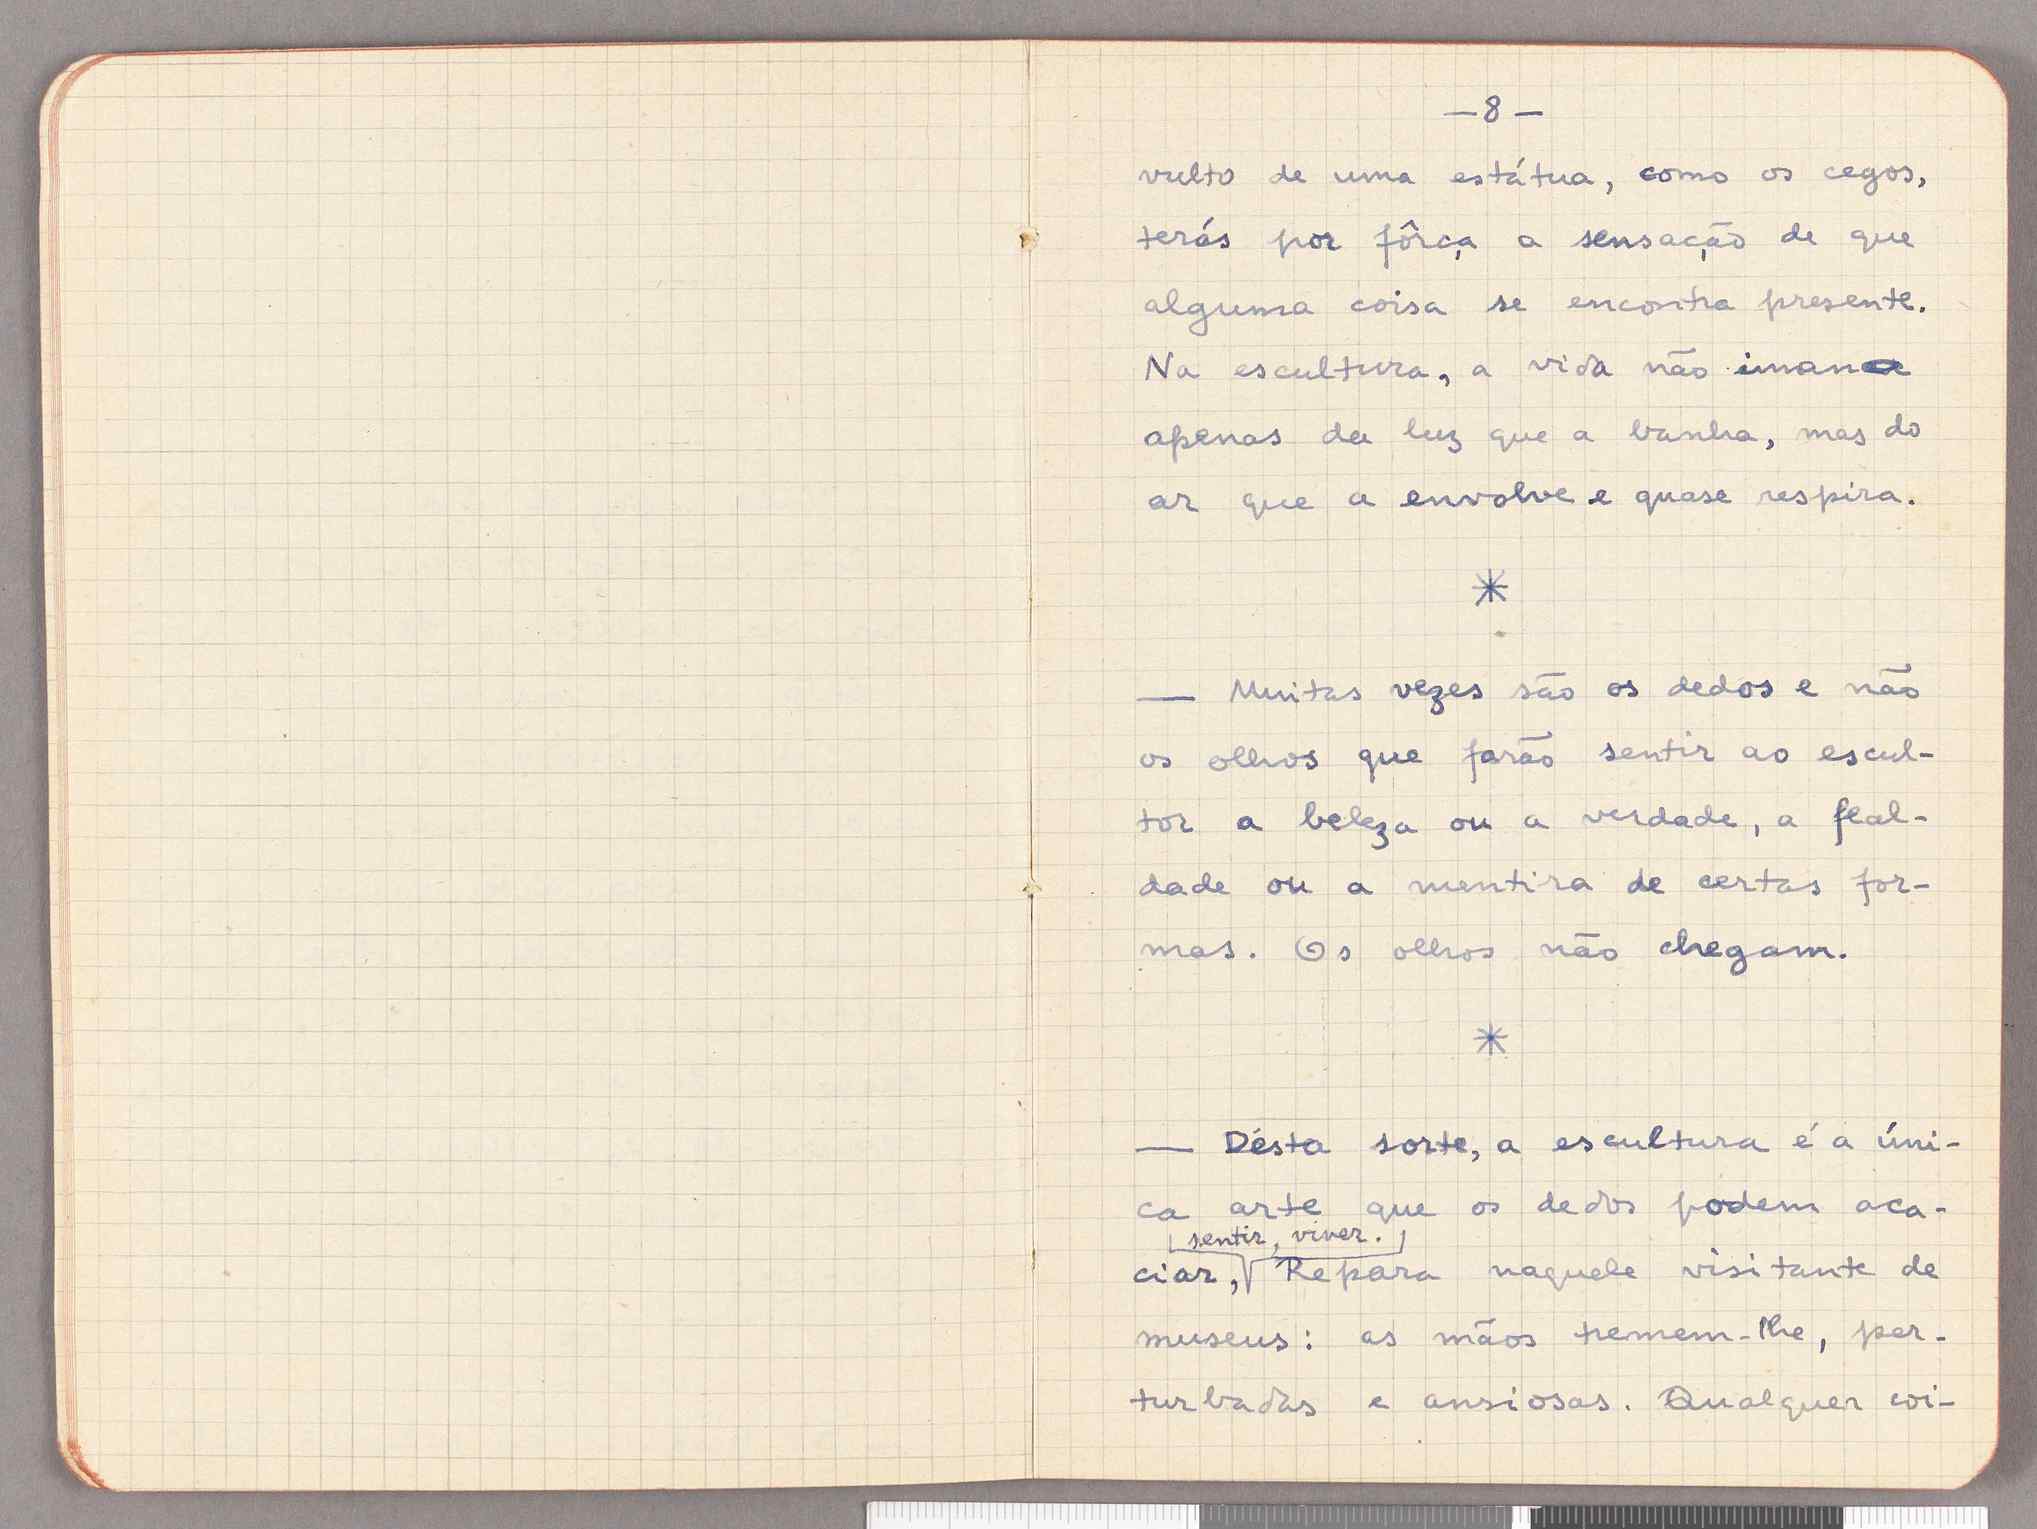 — 8 —
vulto de uma estátua, como os cegos,
terás por fôrça a sensação de que
alguma coisa se encontra presente.
Na escultura, a vida não imana
apenas da luz que a banha, mas do
ar que a envolve e quase respira.
*
— Muitas vezes são os dedos e não
os olhos que farão sentir ao escul-
tor a beleza ou a verdade, a feal-
dade ou a mentira de certas for-
mas. Os olhos não chegam.
*
— Désta sorte, a escultura é a úni-
ca arte que os dedos podem aca-
sentir, viver.
ciar, Repara naquele visitante de
museus: as mãos tremem-lhe, per-
turbadas e ansiosas. Qualquer coi-